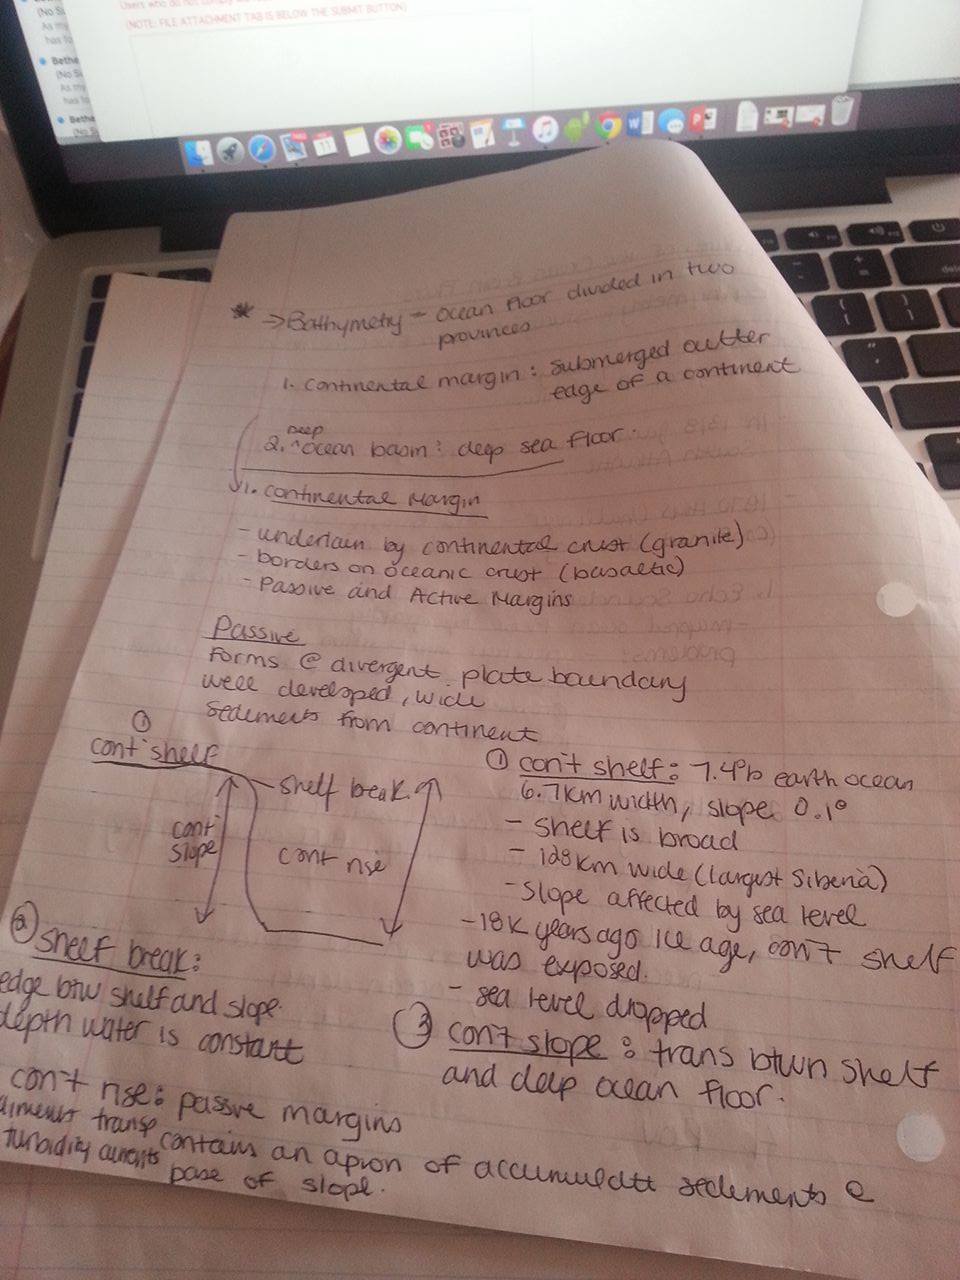 Users who do not comply
(NOTE: FILE ATTACHMENT TAB IS BELOW THE SUBMIT BUTTON)
(No Su
As my
has to
Bethe
(No Su
As my
has to
Bethe
(No S
* → Bathymetry - ocean floor divided in two
provinces
1. continental margin : submerged outter
edge of a continent
Deep
2. ^ocean basin : deep sea floor.
1. continental Margin
- underlain by continental crust (granite)
- borders on oceanic crust (basaltic)
- Passive and Active Margins
Passive
Forms @ divergent plate boundary
well developed, wide
sediments from continent
①
cont shelf
shelf break
cont slope
cont rise
① con't shelf: 7.4% earth ocean
6.7km width, slope 0.1°
- shelf is broad
- 128km wide (largest Siberia)
- slope affected by sea level
- 18K years ago ice age, con't shelf
was exposed.
- sea level dropped
② shelf break:
edge btw shelf and slope
depth water is constant
③ con't slope : trans btwn shelf
and deep ocean floor.
con't rise: passive margins
transp contain an apron of accumulatt sediments @
turbidity currents base of slope.